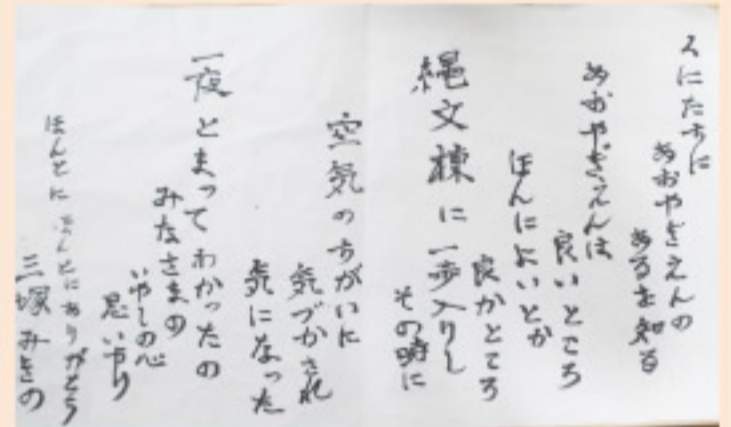 人にたちに
あおやぎえんの
あるを知る
あおやぎえんは
良いところ
ほんによいとか
良かところ
縄文棟に一歩入りし
その時に
空気のちがいに
気づかされ
気になった
一夜とまってわかったの
みなさまの
いやしの心
思いやり
ほんとにほんとにありがとう
三塚みきの